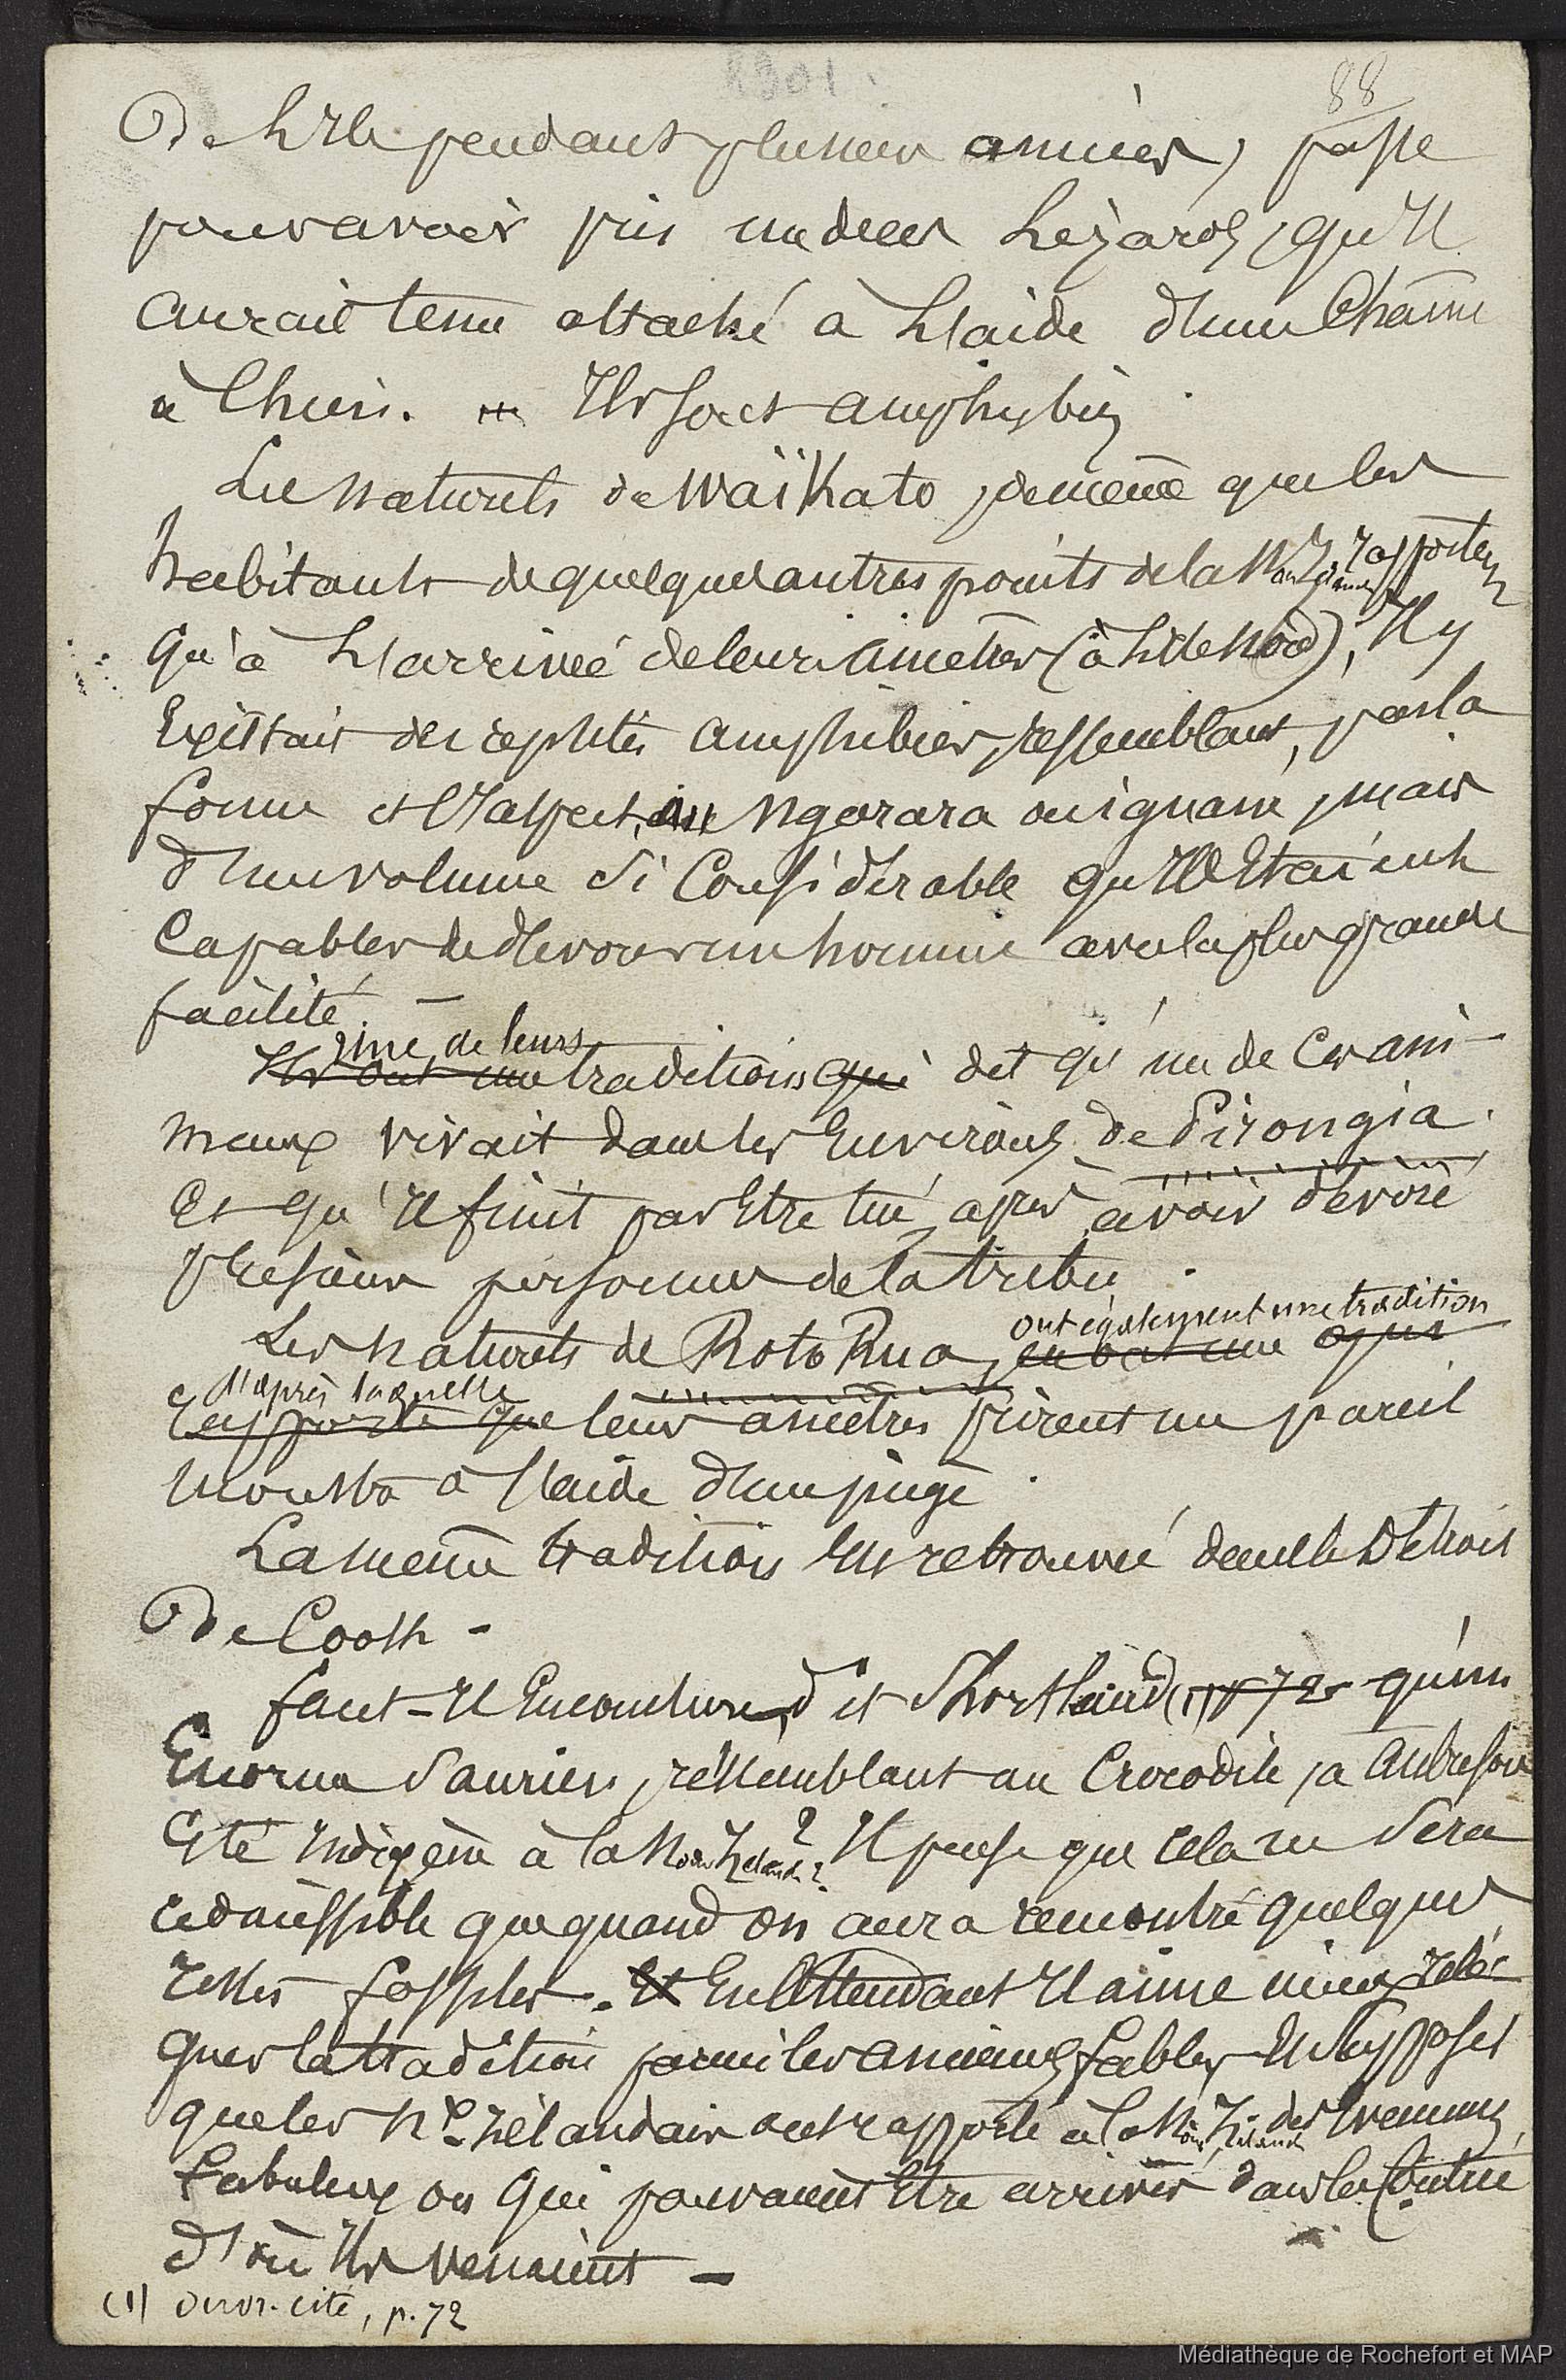 88
de l'Ile pendant plusieurs années, passe
pour avoir pris un de ces Lézards, qu'Il
aurait tenu attaché à l'aide d'une Chaîne
à Chien. Ils sont amphybies
Les naturels de Waïkato, de même que les
habitants de quelques autres points de la Nou. Zélande, rapportent
qu'à l'arrivée de leurs ancêtres (à l'Ile Nord), Il y
Existait des reptiles amphibies, ressemblant, par la
forme et l'aspect, au Ngarara ou iguane, mais
d'un volume si Considérable qu'Ils Etaient
Capables de dévorer un homme avec la plus grande
facilité. —
Ils ont une traditions qui dit qu'un de Ces ani-
une de leurs
maux vivait dans les Environs de Pirongia.
Et qu'Il finit par Etre tué, après avoir dévoré
plusieurs personnes de la tribu.
ont également une tradition
Les naturels de Roto Rua, en ont une qui
d'après laquelle
rapporte que leurs ancêtres prirent un pareil
monstre à l'aide d'un piège.
La même tradition Est retrouvée dans le Détroit
de Cook -
faut-Il En conclure, dit Shortland (1) p 72 qu'un
Enorme Saurien, ressemblant au Crocodile, a autrefois
Eté Indigène à la Nou. Zélande? Il pense que cela ne Sera
admissible que quand on aura rencontré quelques
restes fossiles. Et En attendant Il aime mieux relé-
guer la tradition parmi les anciennes fables Et supposer
que les Nx Zélandais ont rapporté à la Nou. Zélande des Evènements
fabuleux ou qui pouvaient Etre arrivés dans la Contrée
d'où Ils venaient -
(1) ouvr. cité, p. 72
Médiathèque de Rochefort et MAP